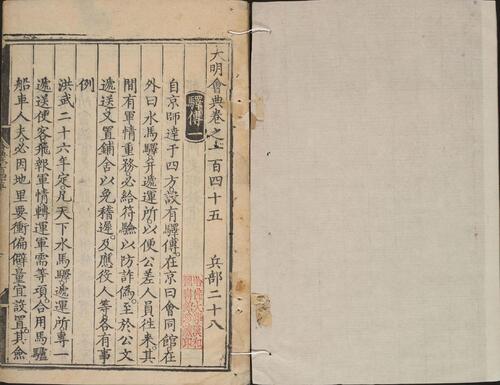 大明會典卷之一百四十五 兵部二十八
驛傳一
自京師達于四方設有驛傳在京曰會同館在
外曰水馬驛并遞運所以便公差人員往來其
間有軍情重務必給符驗以防詐偽至於公文
遞送又置鋪舍以免稽遲及應役人等各有事
例
洪武二十六年定凡天下水馬驛遞運所專一
遞送使客飛報軍情轉運軍需等項合用馬驢
船車人夫必因地里要衝偏僻量宜設置其僉